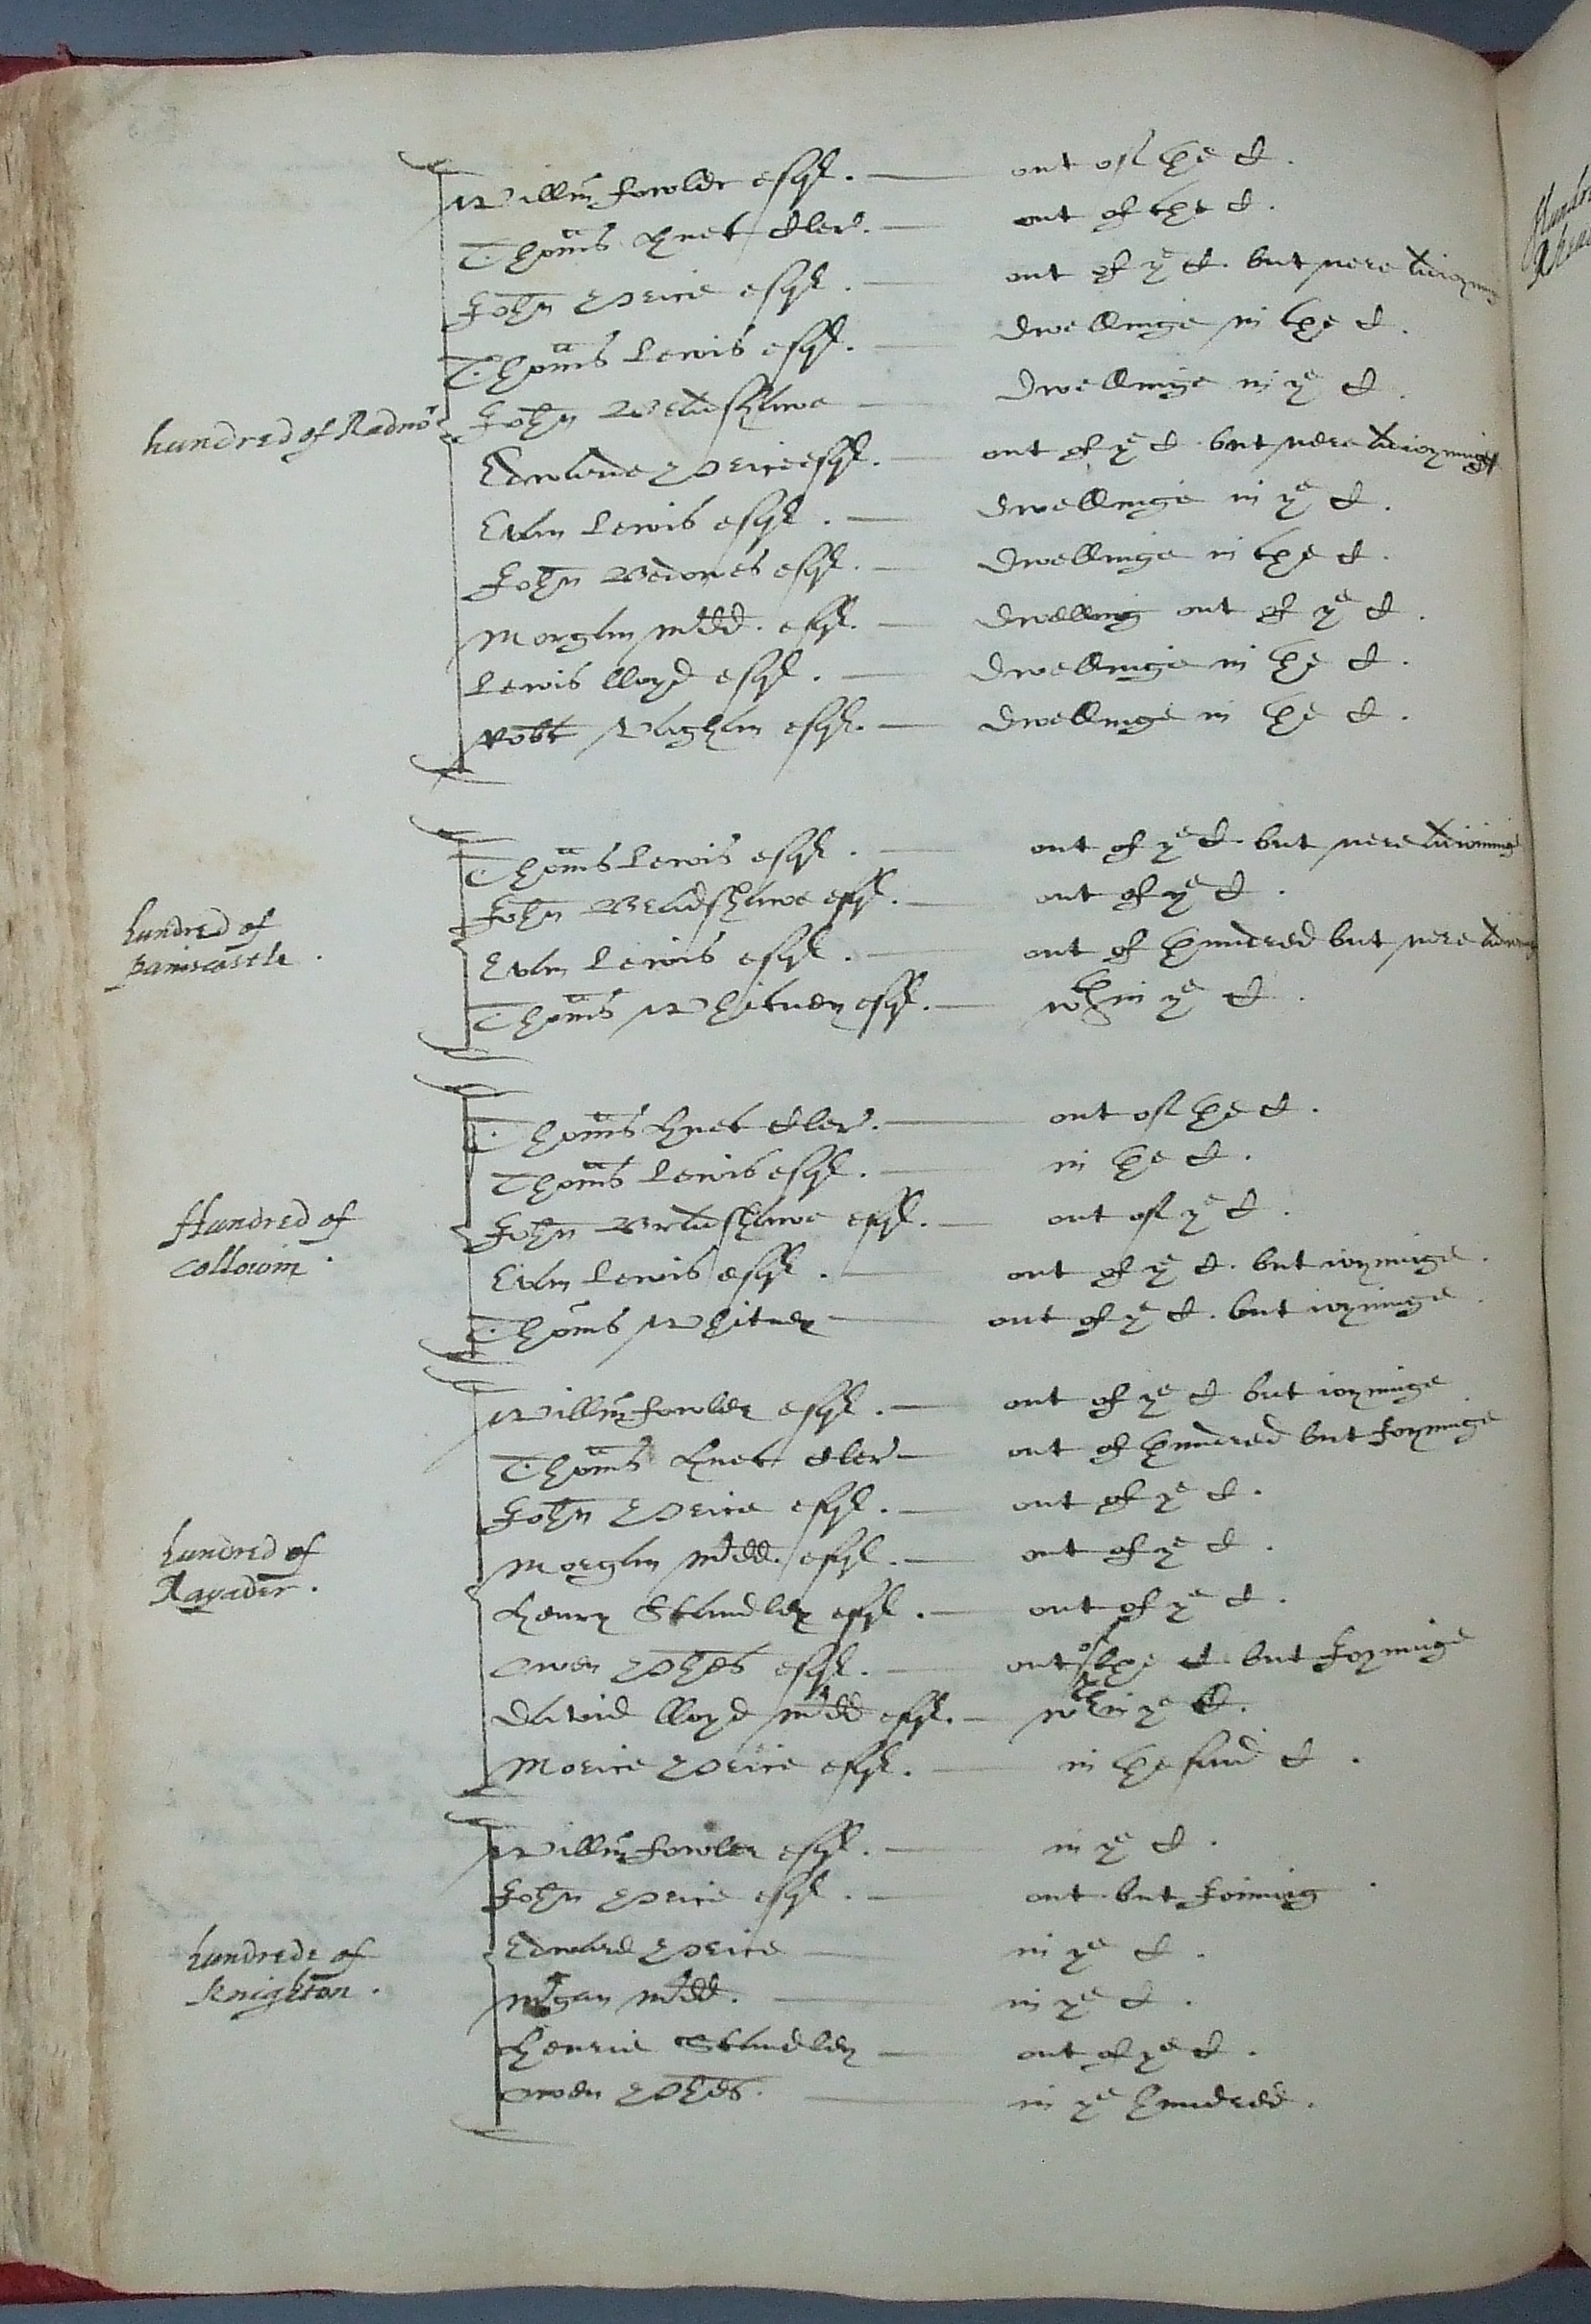 Willm fowler esqr. — out of the C.
Thoms Knet Cler. — out of the C.
John Price esqr. — out of ye C. but nere adioyning
Thoms Lewis esqr. — dwellinge in the C.
hundred of Radnor
John Bradshawe — dwellinge in ye C.
Edwarde Price esqr. — out of ye C but nere adioyninge
Evan Lewis esqr. — dwellinge in ye C.
John Bedowes esqr. — dwellinge in the C.
Morgan mrdd. esqr. — dwelling out of ye C.
Lewis lloyd esqr. — dwellinge in the C.
Robt Vaghan esqr. — dwellinge in the C.
Thoms Lewis esqr. — out of ye C. but nere adioininge
hundred of
painscastle.
John Bradshawe esqr. — out of ye C.
Evan Lewis esqr. — out of hundred but nere
Thoms Whitney esqr. — wthin ye C.
Thoms Knet Cler. — out of the C.
Thoms Lewis esqr. — in the C.
Hundred of
Collowin.
John Bradshawe esqr. — out of ye C.
Evan Lewis esqr. — out of ye C. but ioyninge.
Thoms Whitney — out of ye C. but ioyninge.
Willm fowler esqr. — out of ye C but ioyninge.
Thoms Knet Cler — out of hundred but Joyninge
John Price esqr. — out of ye C.
hundred of
Rayader.
Morgan mrdd. esqr. — out of ye C.
Henry Standley esqr. — out of ye C.
Owen Phes esqr. — out of the C but Joyninge
David lloyd mrdd esqr. — wthin ye C.
Morice Price esqr. — in the said C.
Willm fowler esqr. — in ye C.
John Price esqr. — out but Joining.
hundrede of
Knighton.
Edward Price — in ye C.
Mrgan mrdd. — in ye C.
Henrie Standley — out of ye C.
Owen Phes. — in ye hundred.